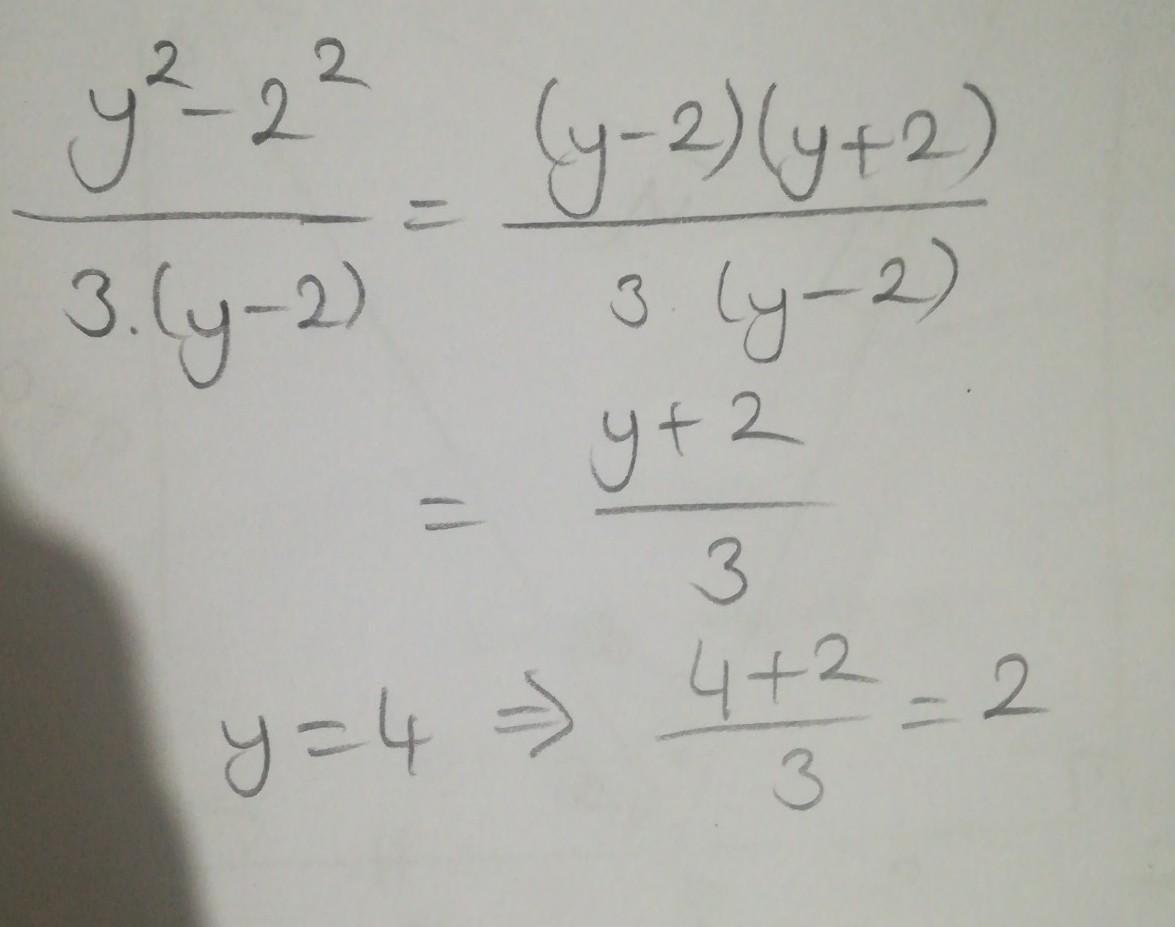 y² - 2² / 3.(y-2) = (y-2)(y+2) / 3.(y-2)
= y+2 / 3
y=4 ⇒ 4+2 / 3 = 2